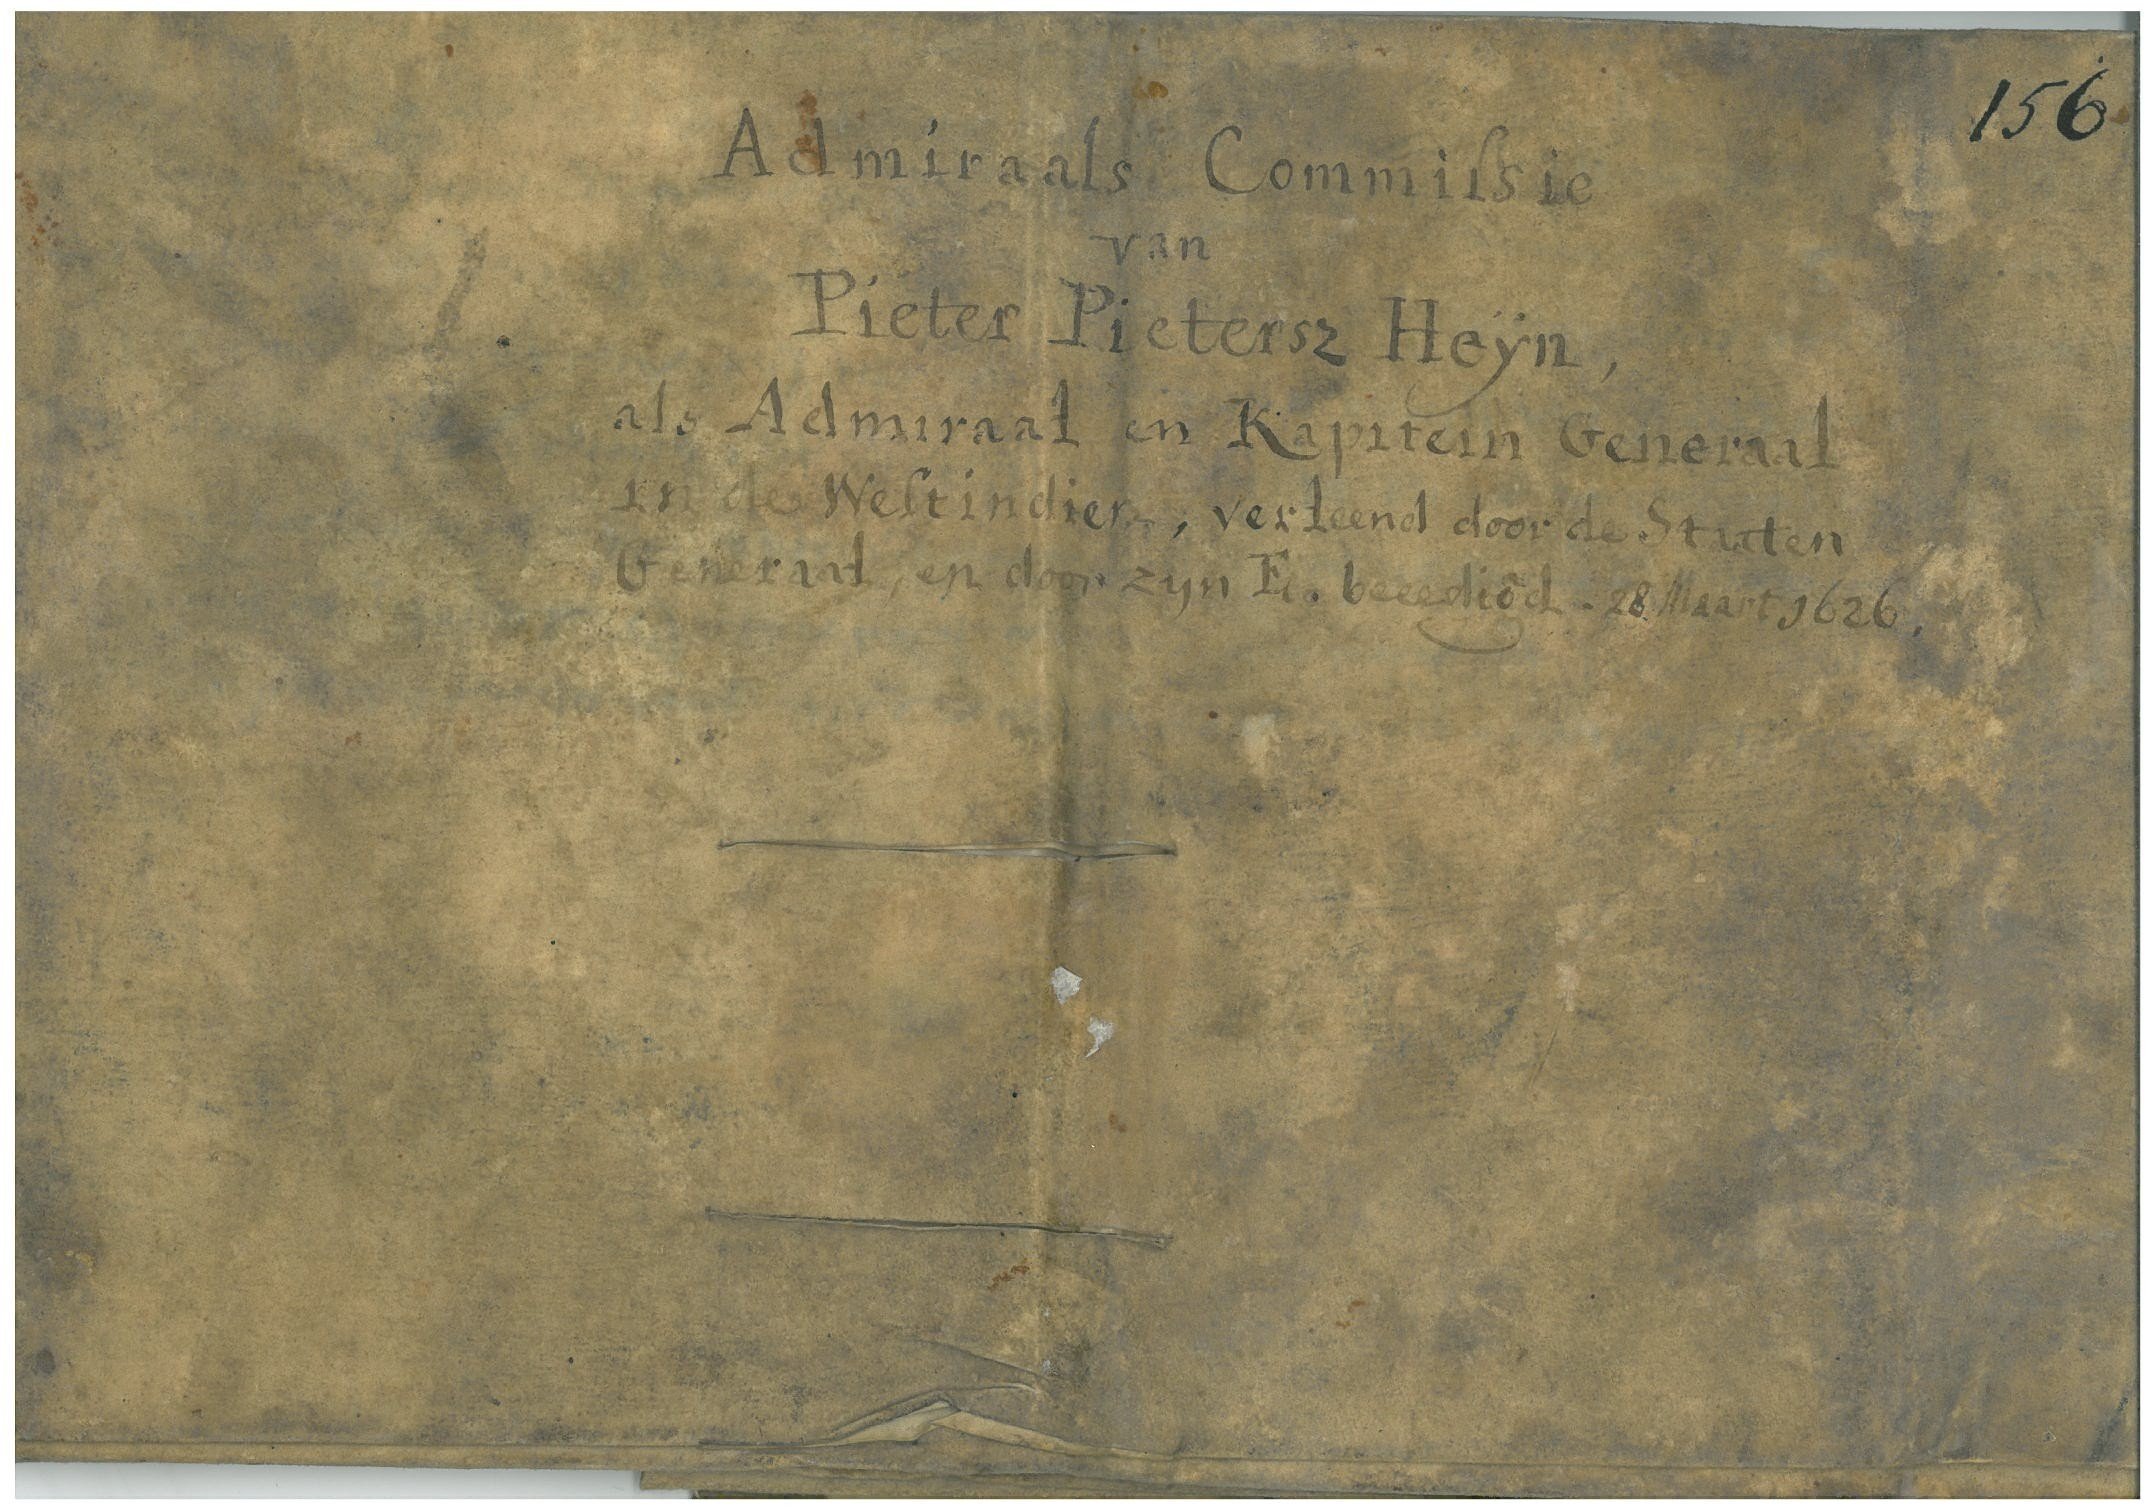 156
Admiraals Commiſsie
van
Pieter Pietersz Heÿn,
als Admiraal en Kapitein Generaal
in de Weſtindien, verleend door de Staaten
Generaal, en door zyn E. beeedigd. 28 Maart 1626.